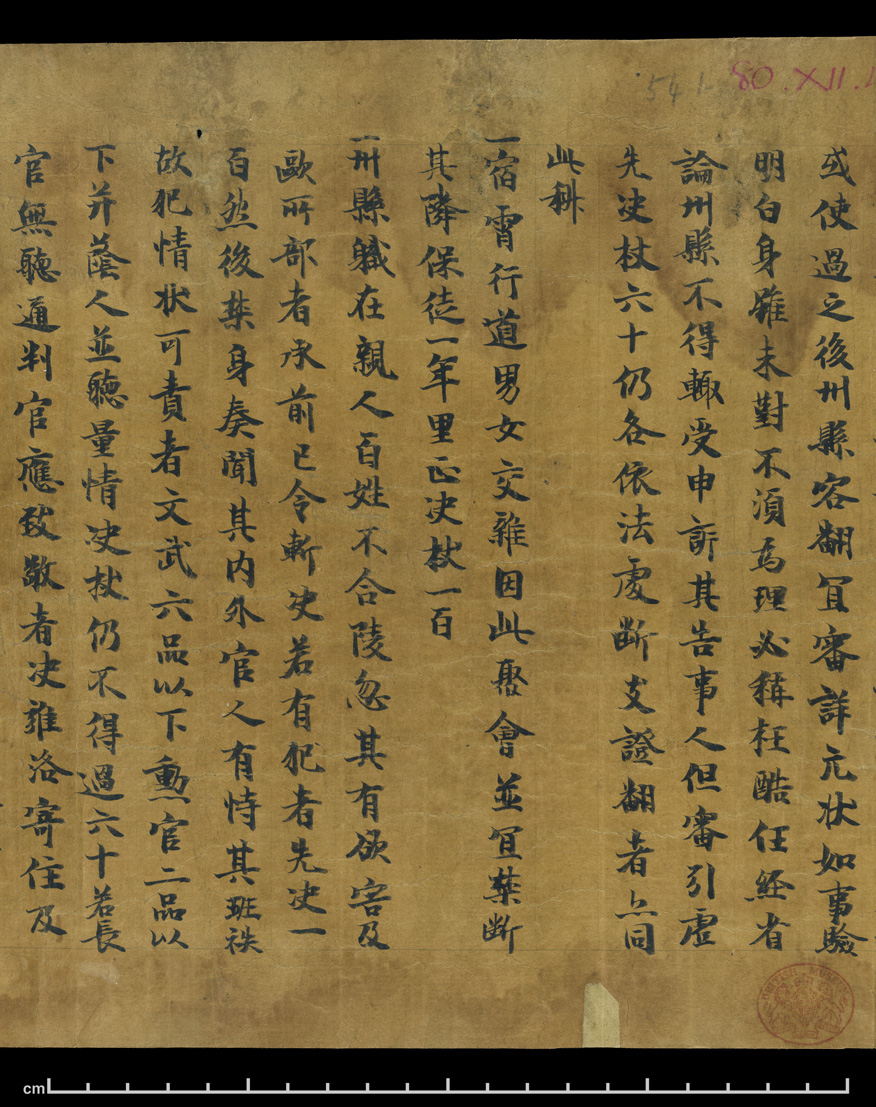 或使過之後州縣容翻冝審詳元状如事驗
明白身雖未對不湏為理必稱枉酷任經省
論州縣不得輙受申訴其告事人但審引虛
先决杖六十仍各依法處断支證翻者亦同
此科
一宿霄行道男女交雜因此聚會並冝禁断
其隣保徒一年里正决杖一百
一州縣軄在親人百姓不合陵忽其有欲害及
毆所部者承前已令斬决若有犯者先决一
百然後禁身奏聞其内外官人有恃其班祑
故犯情状可責者文武六品以下勳官二品以
下并蔭人並聽量情决杖仍不得過六十若長
官無聽通判官應致敬者决雍洛寄住及
541
80.XII.
cm
BRITISH MUSEUM